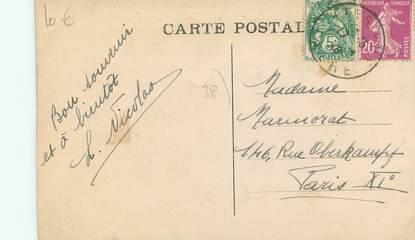 10 €
CARTE POSTALE
5c
20c
POSTES
38
Bon souvenir
et à bientôt
L. Nicolas
Madame
Marmorat
146, Rue Oberkampf
Paris XIº